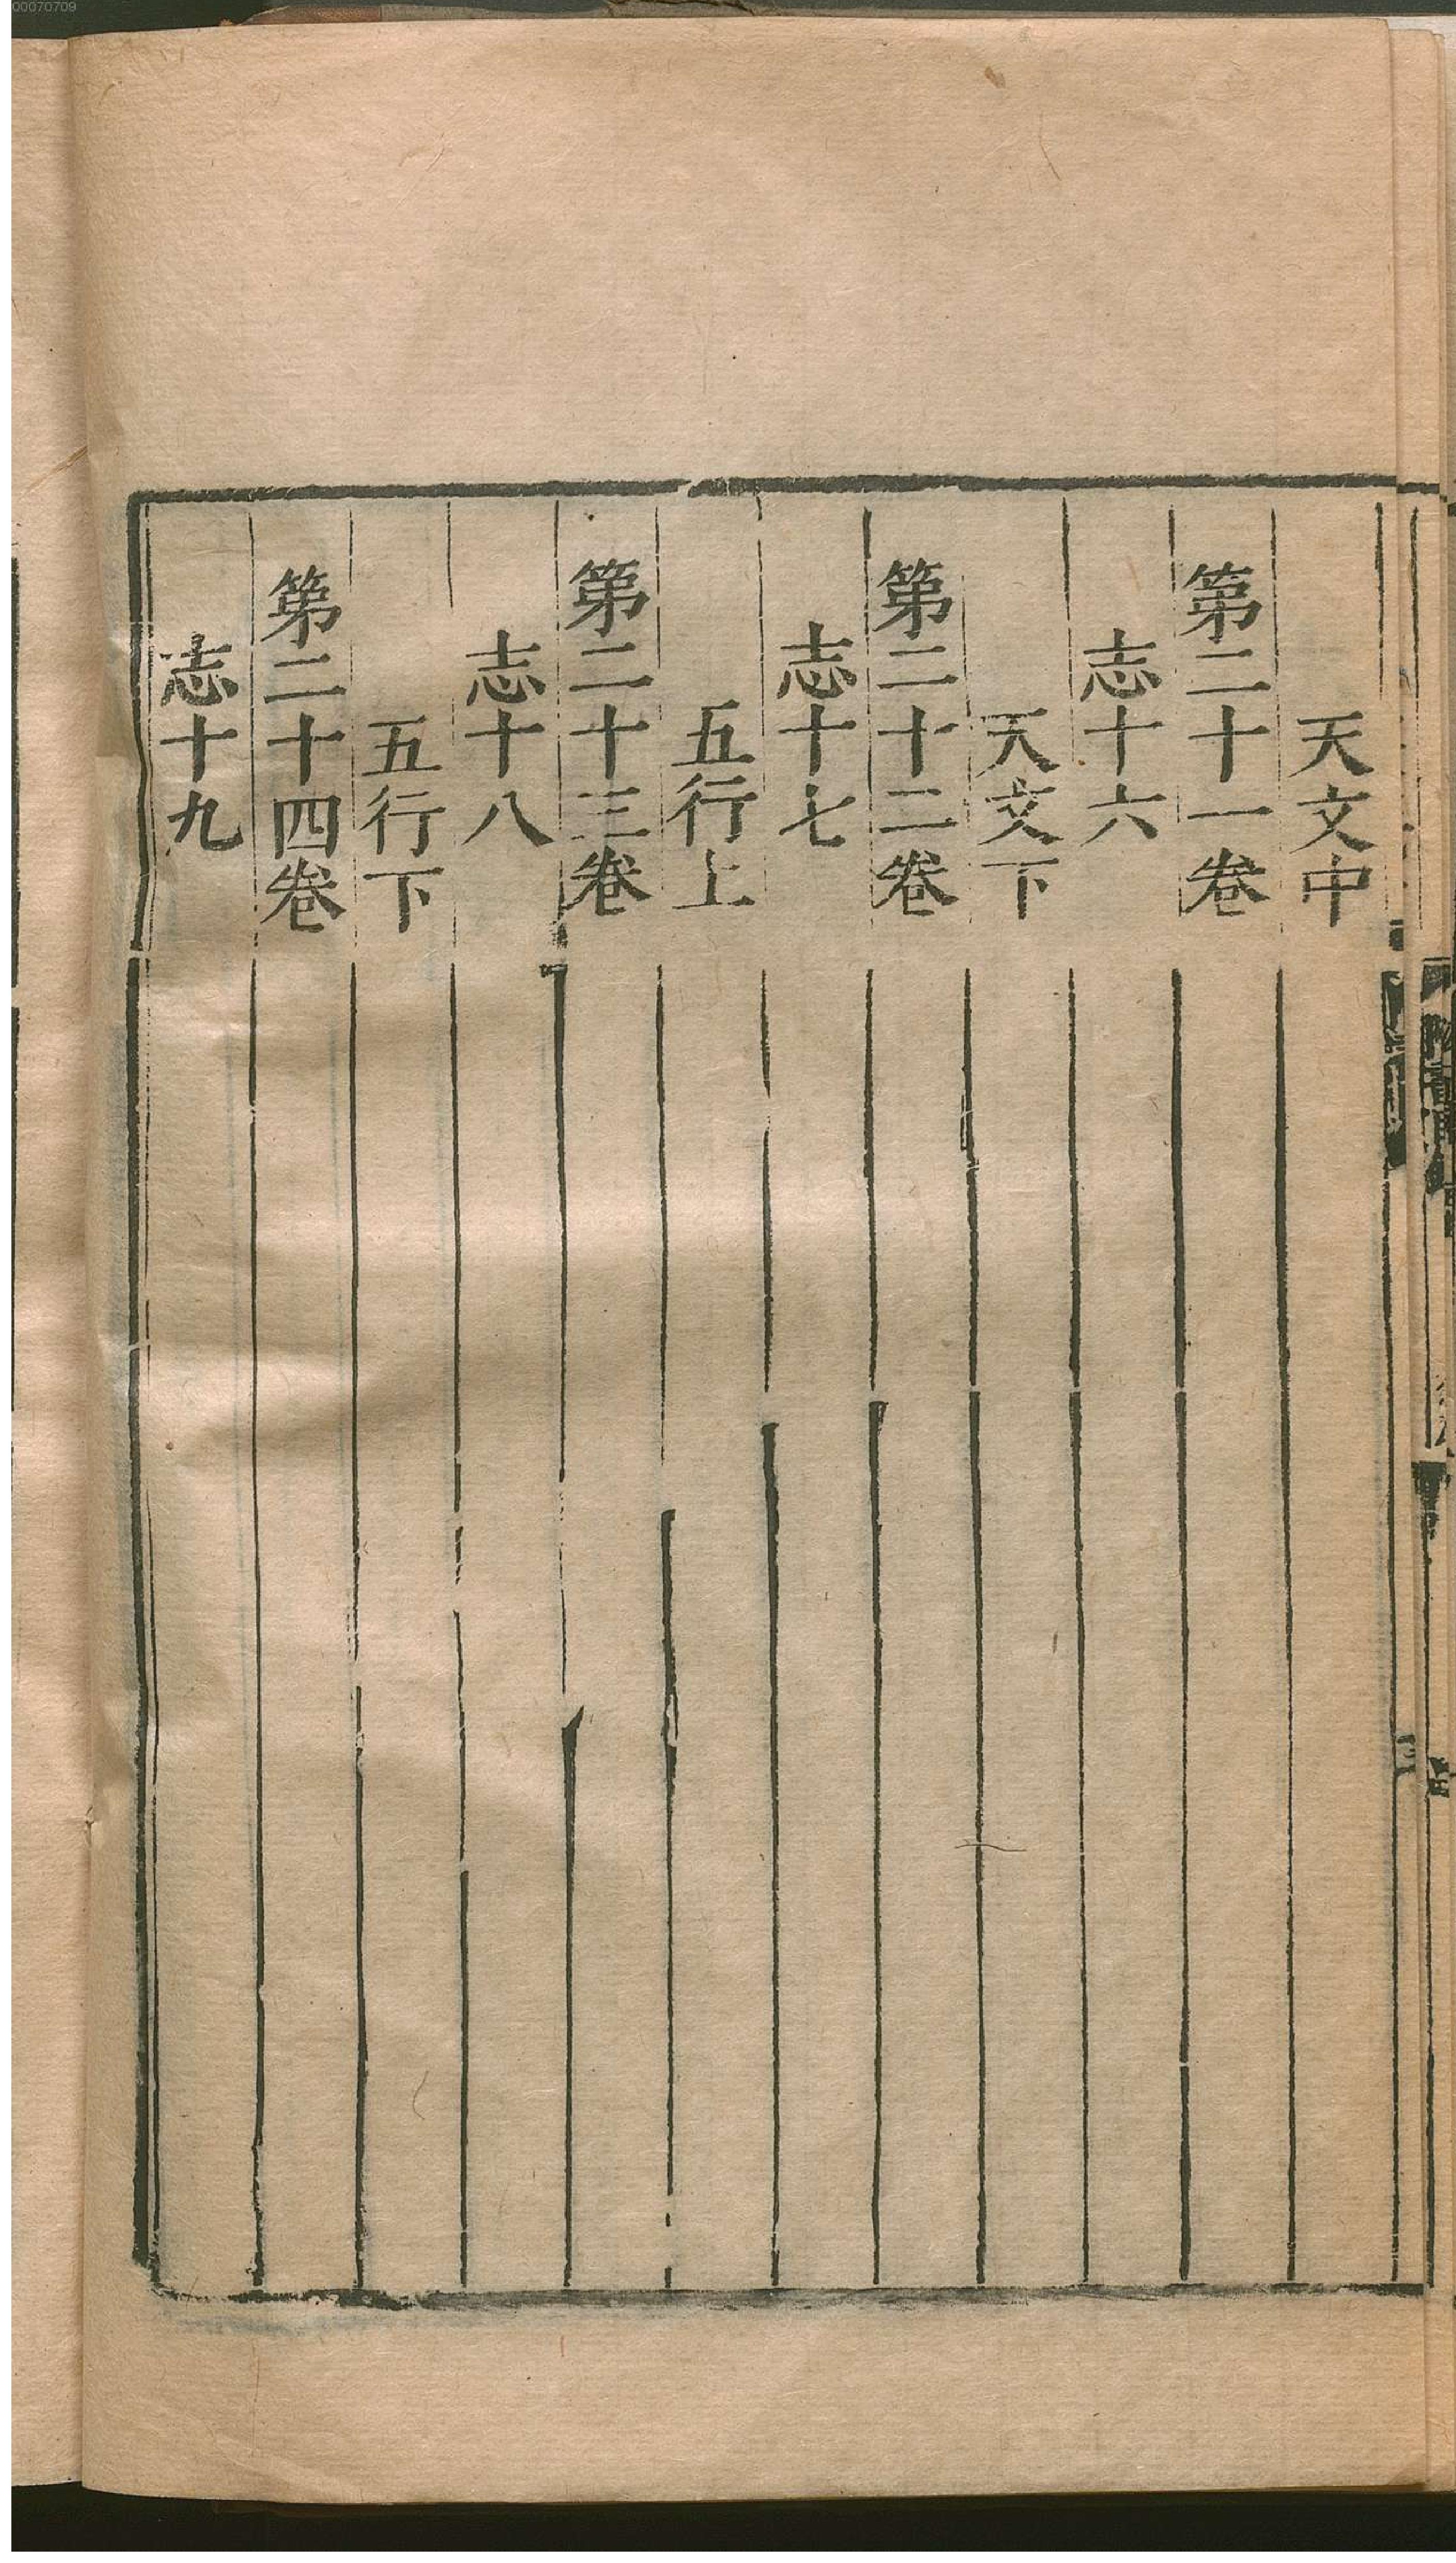 00070709
天文中
第二十一卷
志十六
天文下
第二十二卷
志十七
五行上
第二十三卷
志十八
五行下
第二十四卷
志十九